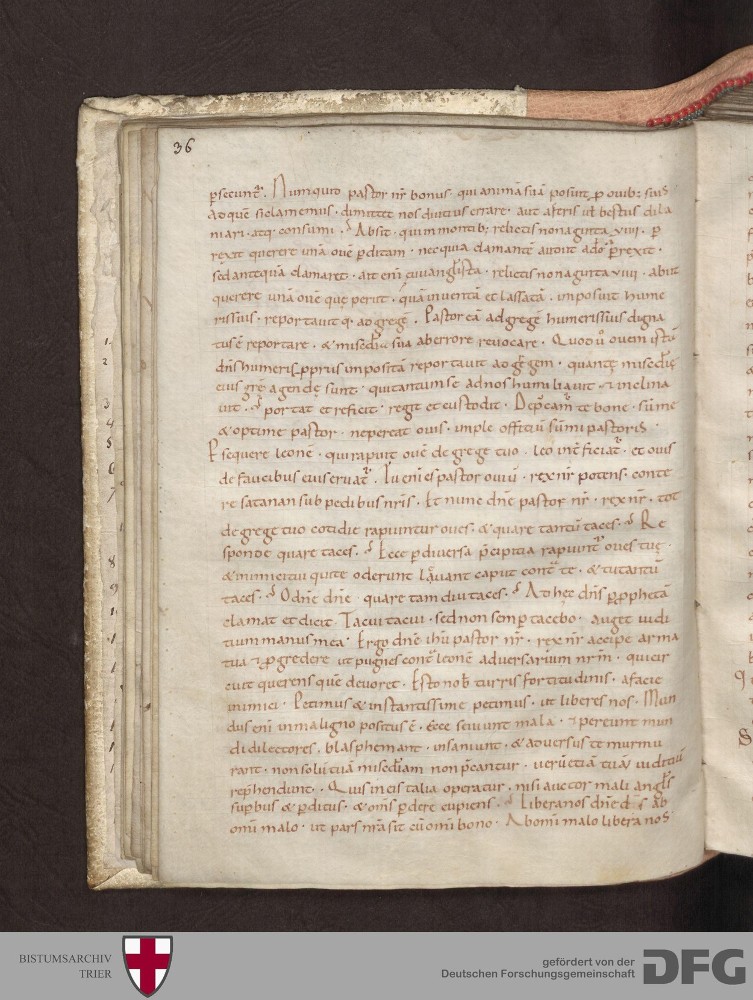 36
psecunt͛. Numquid pastor nr̄ bonus. qui animā suā posuit ꝓ ouib; suis
Ad quē sic clamemus. dimittet nos diutius errare. aut a feris ut bestiis dila
niari. atq; consumi. Absit. qui in montib; relictis nonaginta viiii. p
rexit querere unā ouē pditam. nec quia clamantē audiit ad ꝑrexit.
sed antequā clamaret. ait eni euuangelista. relictis nonaginta viiii. abiit
querere unā ouē quę periit. quā inuentā et lassatā. imposuit hume
ris suis. reportauit q; ad gregē. Pastor eā ad gregē humeris suis digna
tus ē reportare. & misedia sua ab errore reuocare. Quod ů ouem istā
dn̄s humeris ꝓpriis impositā reportauit ad gregem. quantę misedię
eius gre agendę sunt. qui tantum se ad nos humiliauit & inclina
uit. portat et reficit. regit et custodit. Depcam͛ te bone. sūme
& optime pastor. ne pereat ouis. imple officiū sūmi pastoris.
Psequere leonē. qui rapuit ouē de grege tuo. leo int̄ficiat͛. et ouis
de faucibus eius eruat͛. Tu eni es pastor ouiū. rex nr̄ potens. conte
re satanan sub pedibus nr̄is. Et nunc dn̄e pastor nr̄. rex nr̄. tot
de grege tuo cotidie rapiuntur oues. & quare tantū taces. Re
sponde quare taces. Ecce p diuersa pcipitia rapiunt͛ oues tuę.
& inimici tui qui te oderunt leuant caput cont͛ te. & tu tantū
taces. O dn̄e dn̄e quare tam diu taces. Ad hęc dn̄s p ꝓphetā
clamat et dicit. Tacui tacui. sed non semp tacebo. auget iudi
tium manus mea. Ergo dn̄e ihū pastor nr̄. rex nr̄ accipe arma
tua & ꝓgredere ut pugnes cont͛ leonē aduersarium nrm̄. qui cir
cuit querens quē deuoret. Esto nob turris fortitudinis. a facie
inimici. Petimus & instantissime petimus. ut liberes nos. Mun
dus eni in maligno positus ē. Ecce seuiunt mala. & pereunt mun
di dilectores. blasphemant. insaniunt. & aduersus te murmu
rant. non solū tuā misediam non pcantur. uerū etiā tuā iuditiū
rephendunt. Quis in eis talia operatur. nisi auctor mali angls
supbus & pditus. & om̄s pdere cupiens. Libera nos dn̄e ab
omi malo. ut pars nr̄a sit cū omi bono. Ab omi malo libera nos
BISTUMSARCHIV
TRIER
gefördert von der
Deutschen Forschungsgemeinschaft
DFG